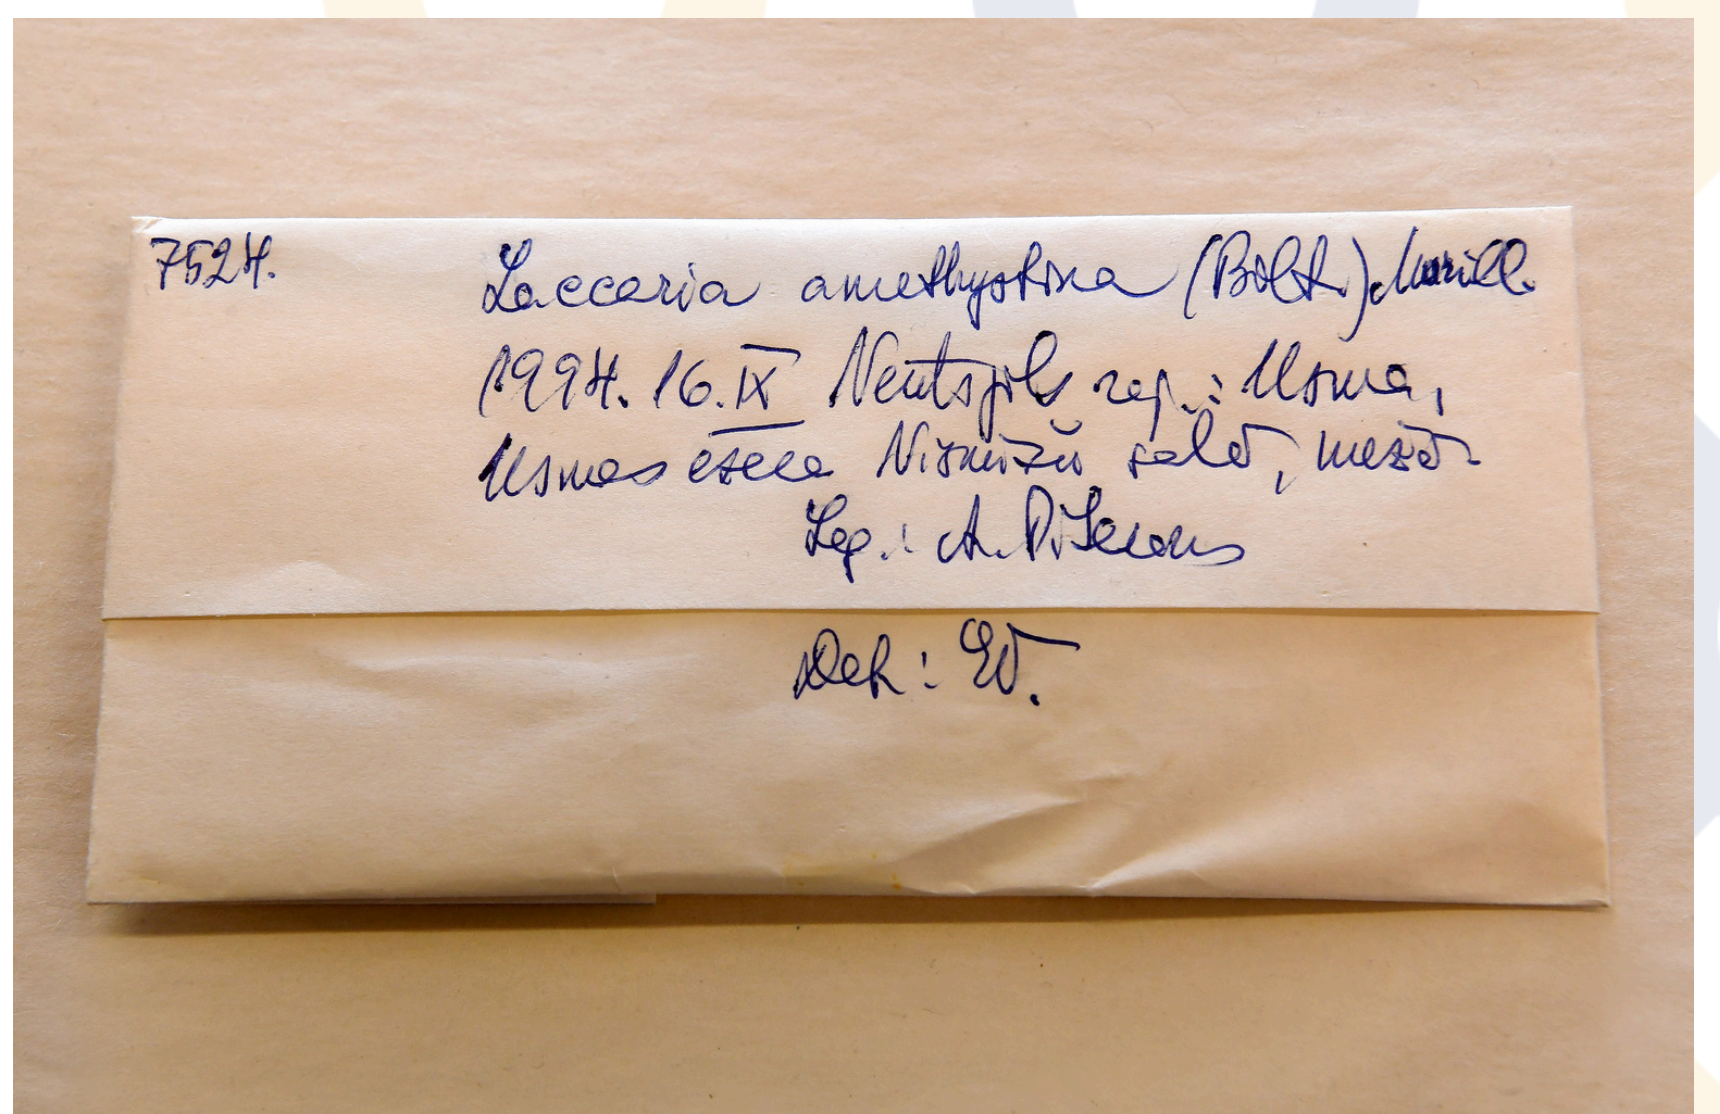 7524.
Laccaria amethystina (Bolt.) Murill.
1994. 16. IX Ventspils raj.: Usma,
Usmas ezera Viskūžu salā, mežā.
Leg.: A. Piterāns
Det.: EV.